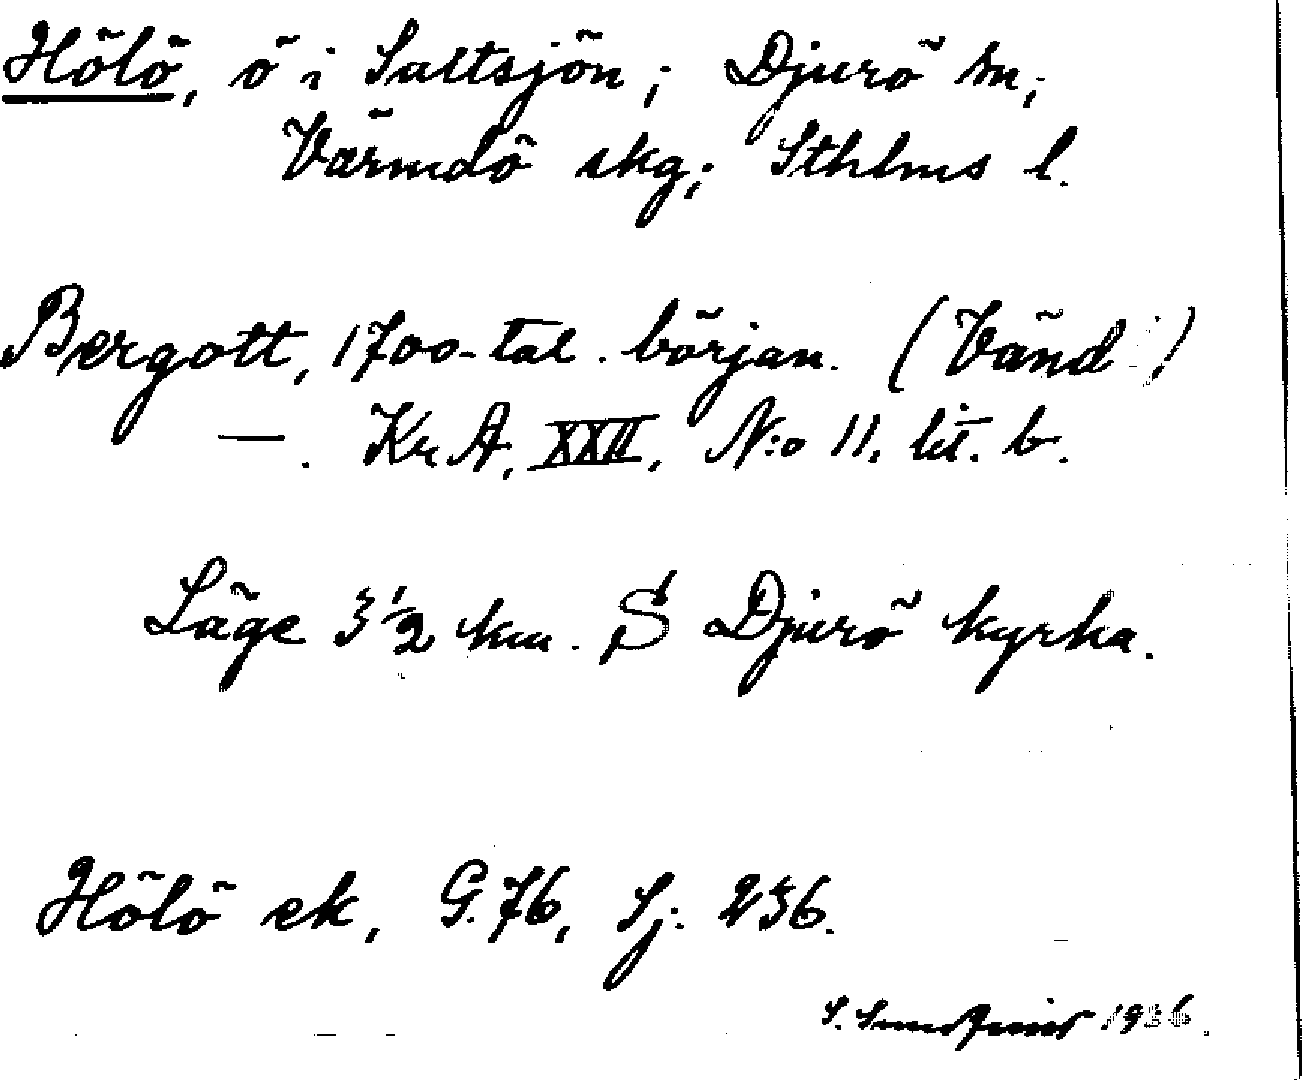 Hölö, ö i Saltsjön; Djurö sn;
Värmdö skg; Sthlms l.
Bergott, 1700-tal. början. (Vänd!)
—. Kr A, XXII, N:o 11. lit. b.
Läge 3 1/2 km. S Djurö kyrka.
Hölö ek, G. 76, Sj. 236.
S. 1936.